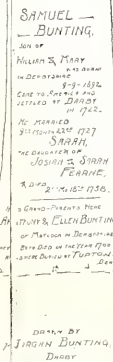 SAMUEL
BUNTING,
SON OF
WILLIAM & MARY
WAS BORN
IN DERBYSHIRE
8-9-1692
CAME TO AMERICA AND
SETTLED AT DARBY
IN 1722.
HE MARRIED
9TH MONTH 22ND 1727
SARAH,
THE DAUGHTER OF
JOSIAH & SARAH
FEARNE,
& DIED
2ND MO 15TH 1758.
GRAND-PARENTS WERE
& ELLEN BUNTIN
OF MATLOCK IN DERBYSHIRE
BOTH DIED IN THE YEAR 170
BURIED AT TUPTON
DRAWN BY
MORGAN BUNTING,
DARBY